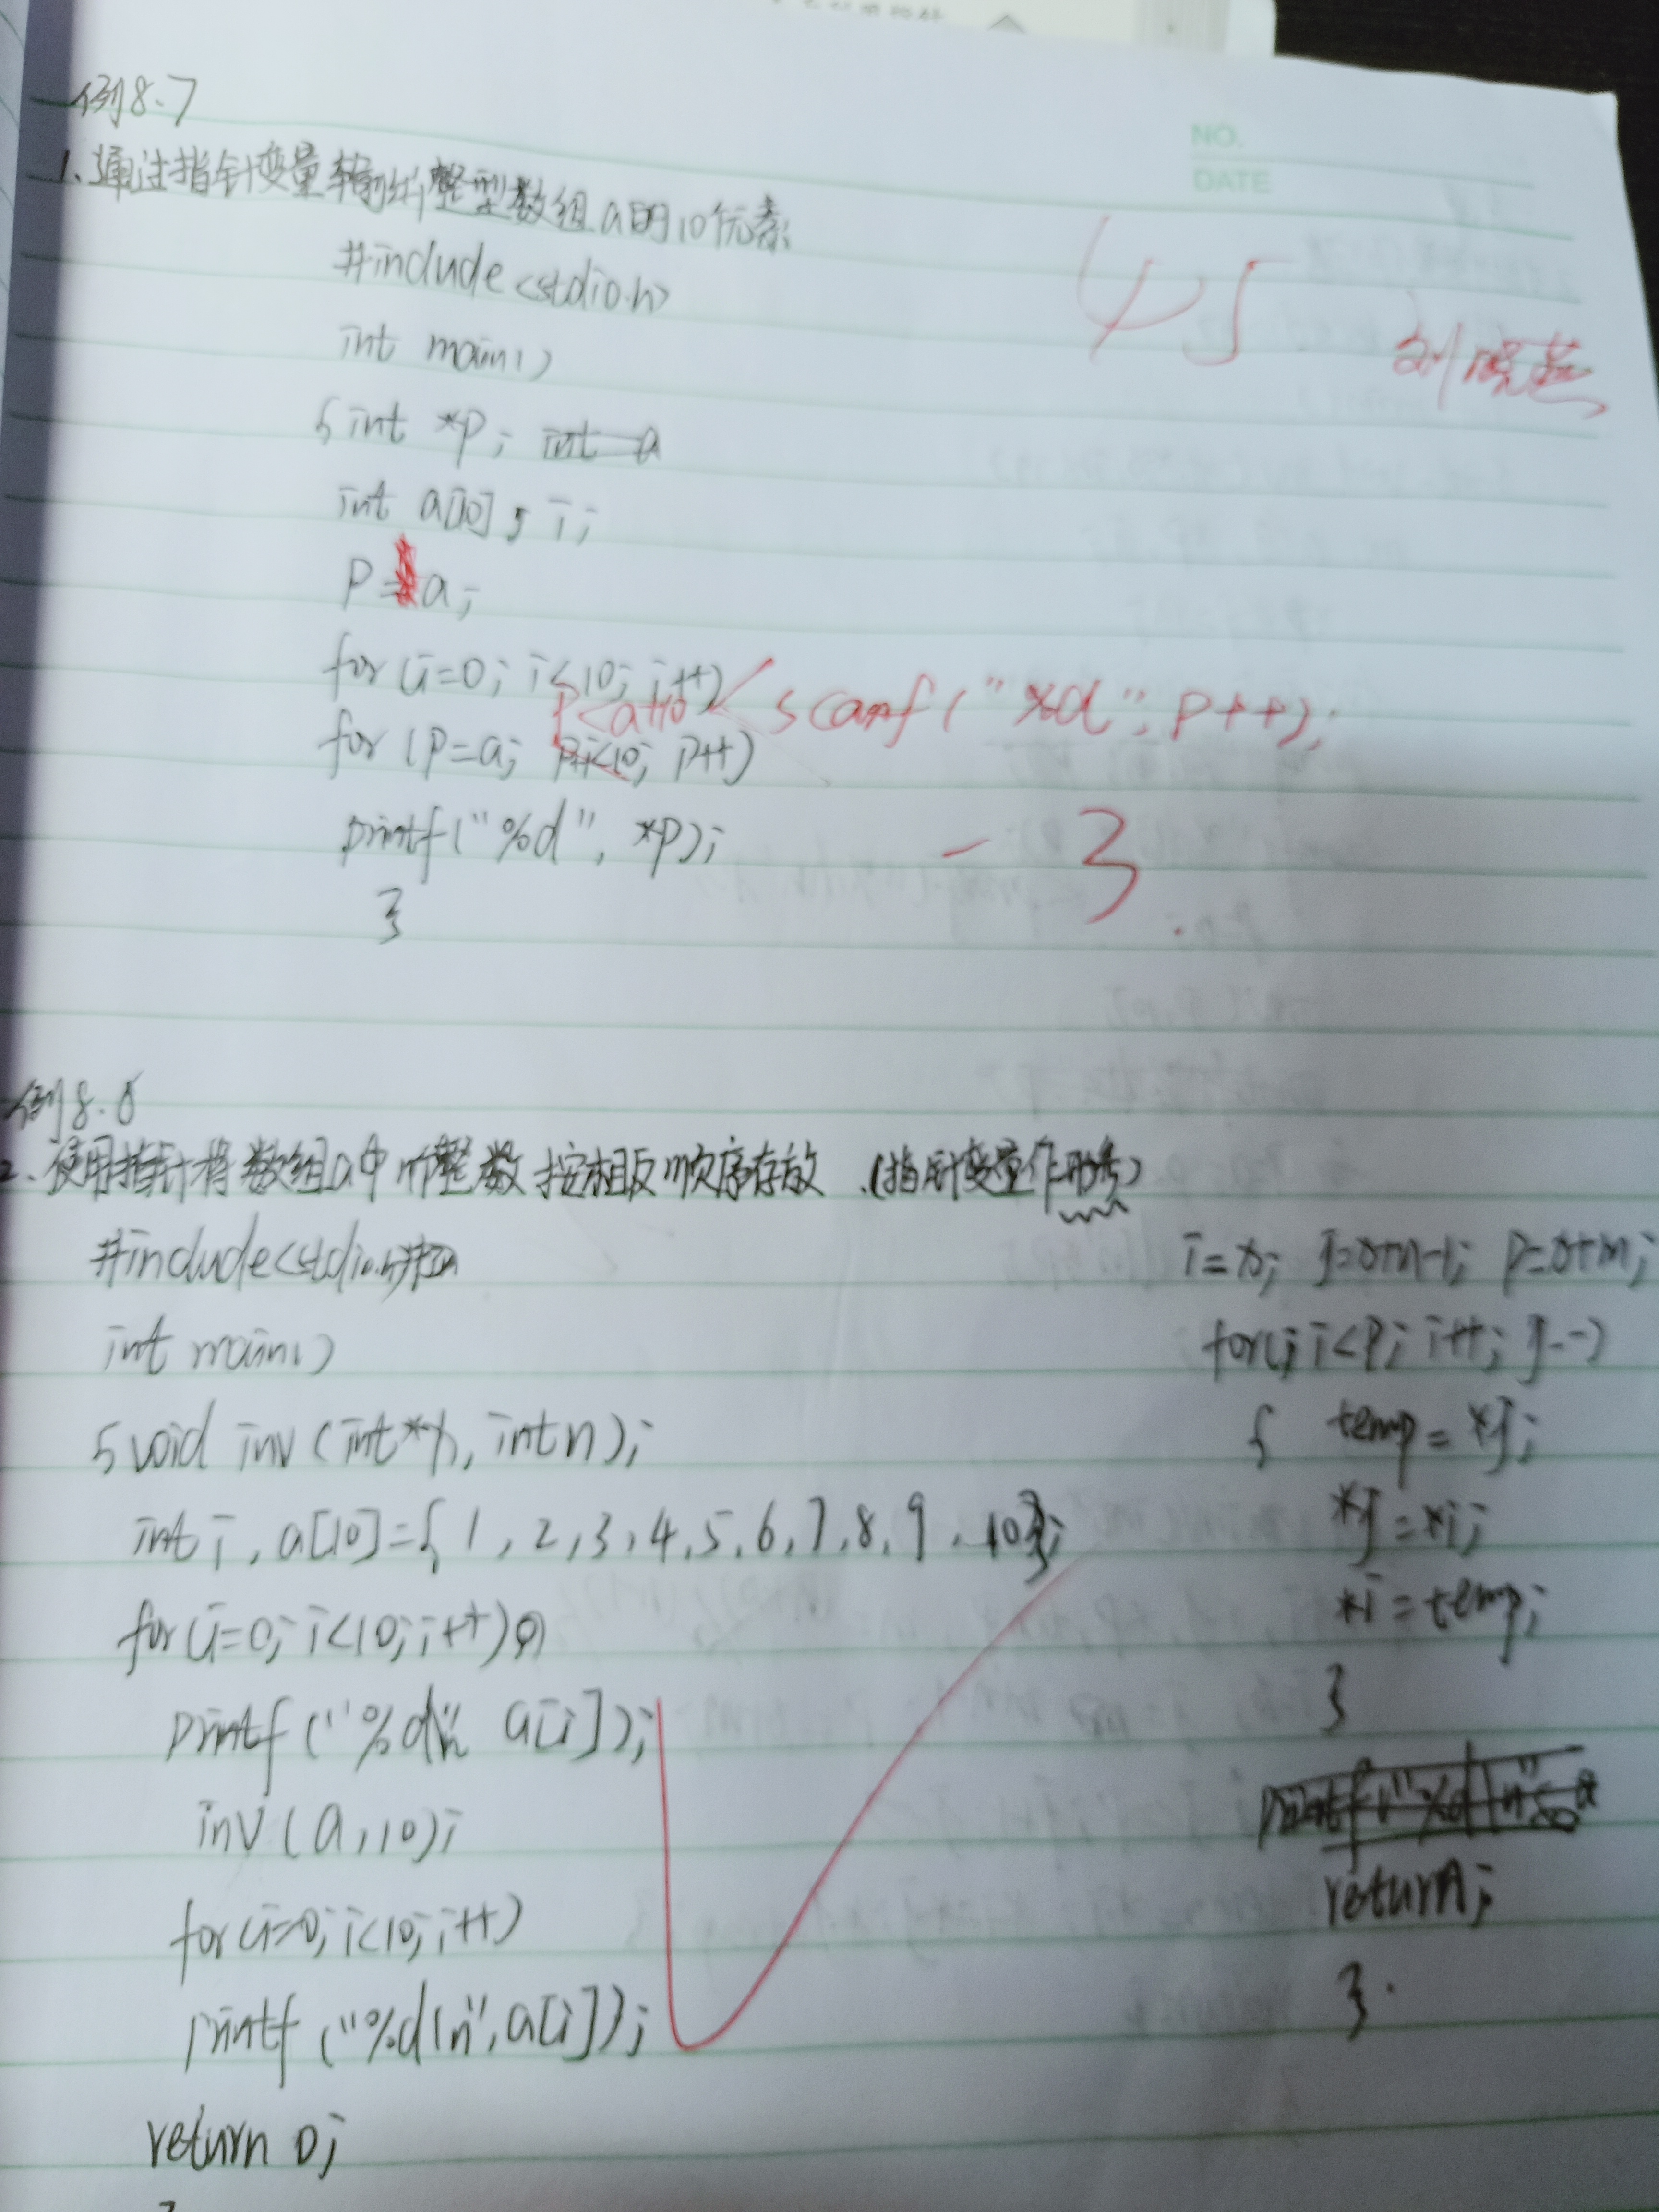 NO.
DATE
例8.7
1.通过指针变量输出整型数组a的10个元素
45
#include<stdio.h>
int main()
{int *p; int a
int a[10], i;
p=a;
for(i=0; i<10; i++) scanf("%d", p++);
p<a+10
for (p=a; p+i<10; p++)
printf("%d", *p);
-3
}
例8.8
2.使用指针将数组a中n个整数按相反顺序存放.(指针变量作形参)
#include<stdio.h>
int main()
{void inv(int*x, int n);
int i, a[10]={1,2,3,4,5,6,7,8,9,10};
for(i=0; i<10; i++)
printf("%d\n", a[i]);
inv(a,10);
for(i=0; i<10; i++)
printf("%d\n", a[i]);
return 0;
i=x; j=x+n-1; p=x+m;
for(; i<p; i++; j--)
{ temp=*j;
*j=*i;
*i=temp;
}
return;
}